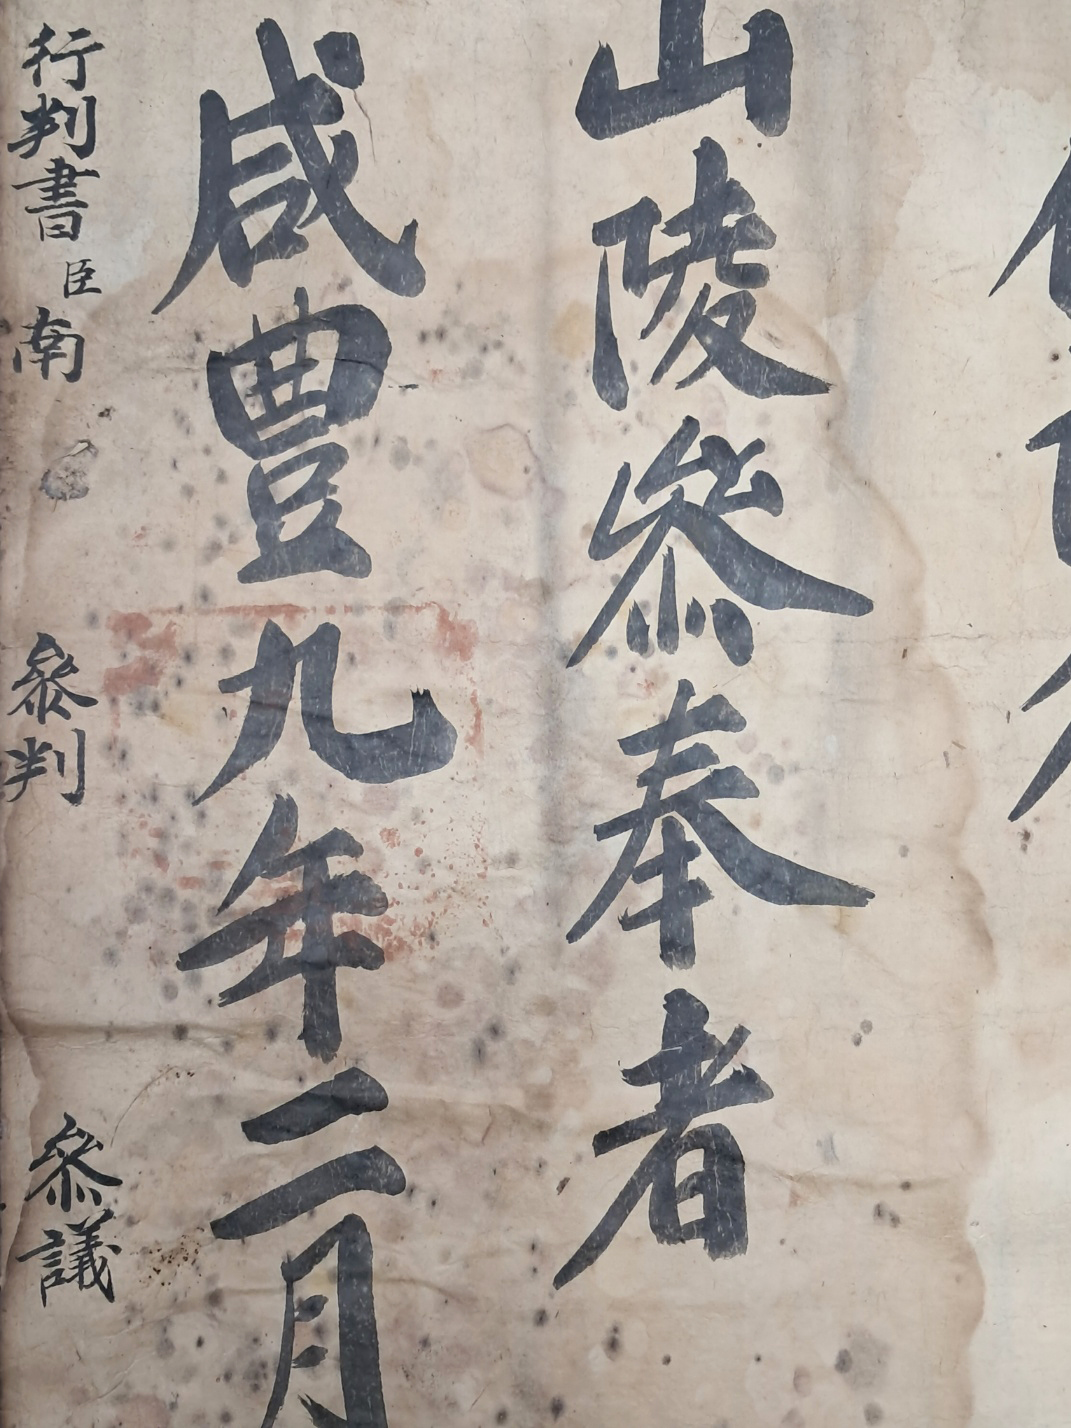 山陵參奉者
咸豊九年二月
行判書臣南
參判
參議